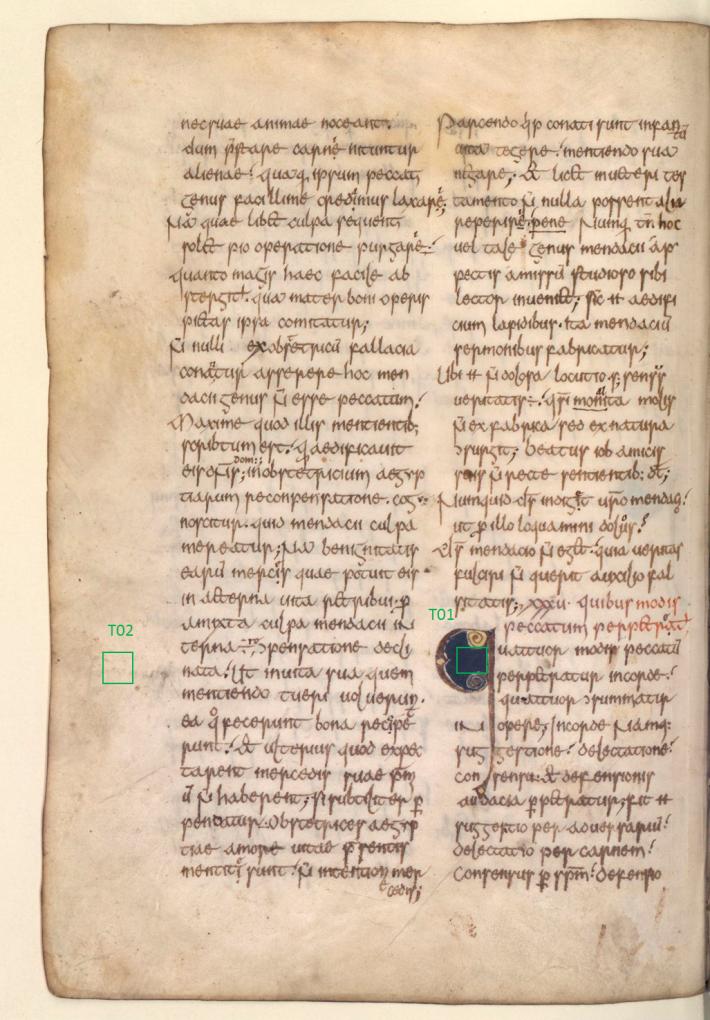 necsuae animae noceant.
dum p̄stare carnē nituntur
alienae: quaq, ipsum peccati
genus facillime credimus laxarē;
Nā quae libet culpa sequenti
solet pio operatione purgarē
quanto magis haec facile ab
stergit. qua mater boni operis
pietas ipsa comitatur;
nulli ex obstetricū fallacia
conatur asserere hoc men
dacii genus n̄ esse peccatum.
Maxime quod illis mentientib;
scribtum est. q aedificauit
eis dn̄s dom; in obstetricium aegyp
tiarum reconpensatione. cog
noscitur. quid mendacii culpa
mereatur; Nā benignitatis
earū mercis quae potuit eis
in aeterna uita retribui. p
amixta culpa mendacii in
terna ɔpensatione decli
nata. Ut inuita sua quem
mentiendo tueri uoluerunt.
ea q fecerunt bona recipe
runt. et ulterius quod expec
tarent mercedis suae
n̄ haberent; si subtiliter p
pendatur. Obstetrices aegyp
tiae amore uitae p̄sentis
mentiti sunt. n̄ intentione mer
cedis;
Parcendo conati sunt infan
tū
uita tegere. mentiendo sua
nigare; Et licet in ueteri tes
tamento n̄ nulla possent alia
reperire. pene Numq tn̄ hoc
uel tale genus mendacii ap
pectis amissū studioso sibi
lector inueniet; sic et aedifi
cium lapidibus. ita mendaciū
sermonibus fabricatur;
Ubi et n̄ dolosa locutio sensus
ueritatis. qsi monita molis
n̄ ex fabrica sed ex natura
ɔsurgit; beatus iob amicis
suis n̄ recte sentientib: dt;
Numquid ds̄ indiget uro mendaq.
ut p illo loquamini dolus.
ds̄ mendacio n̄ eget. quia ueritas
fulciri n̄ querit auxilio fal
sitatis; xxxu. quibus modis
peccatum perpetrat
T01
T02
uattuor modis peccatū
perpetratur incorde.
quattuor ɔsummatur
in opere; Incorde Namq:
suggestione. delectatione.
consensu. et defensionis
audacia ppetratur; fit et
suggestio per aduersariū.
delectatio per carnem.
Consensus p spm̄. defensio